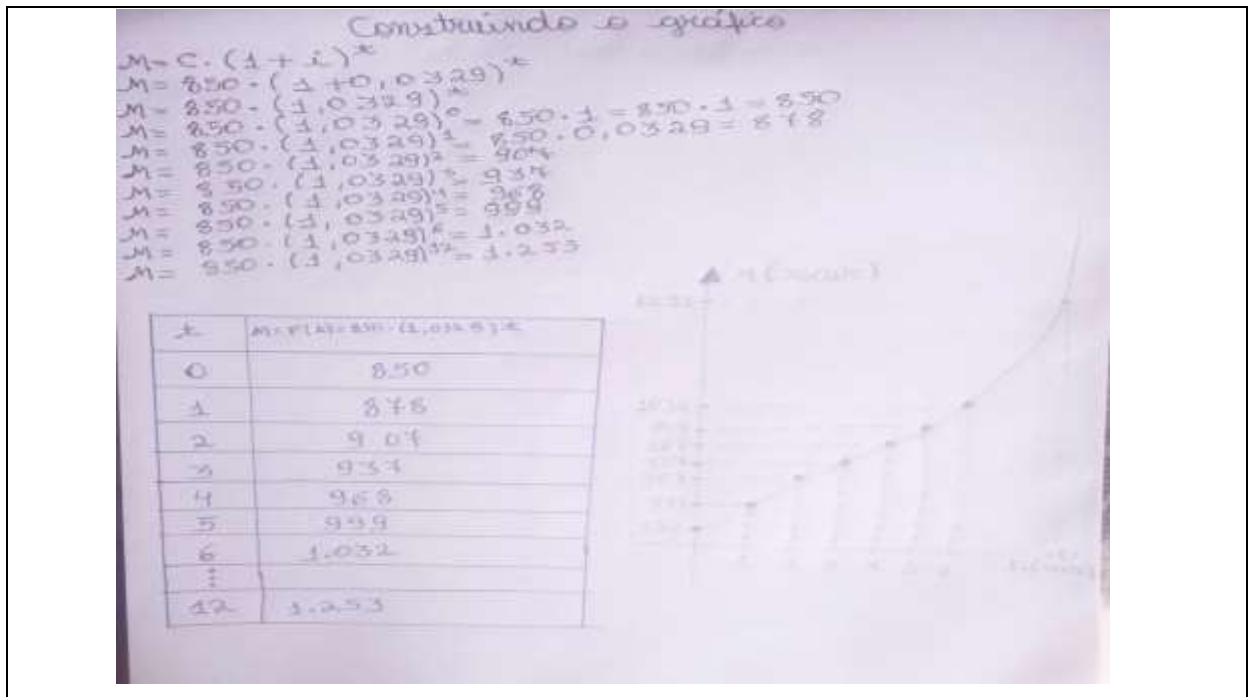 Construindo o gráfico
M = C · (1 + i)^t
M = 850 · (1 + 0,0329)^t
M = 850 · (1,0329)^t
M = 850 · (1,0329)^0 = 850 · 1 = 850 · 1 = 850
M = 850 · (1,0329)^1 = 850 · 0,0329 = 878
M = 850 · (1,0329)^2 = 907
M = 850 · (1,0329)^3 = 937
M = 850 · (1,0329)^4 = 968
M = 850 · (1,0329)^5 = 999
M = 850 · (1,0329)^6 = 1.032
M = 850 · (1,0329)^12 = 1.253
t M = F(t) = 850 · (1,0329)^t
0 850
1 878
2 907
3 937
4 968
5 999
6 1.032
⋮
12 1.253